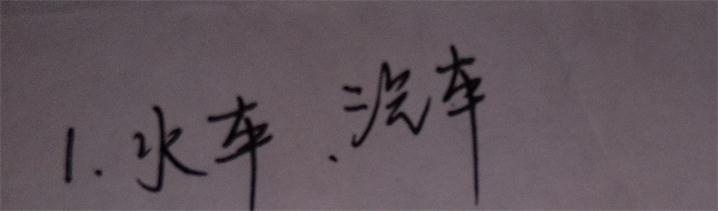 1. 水车、汽车